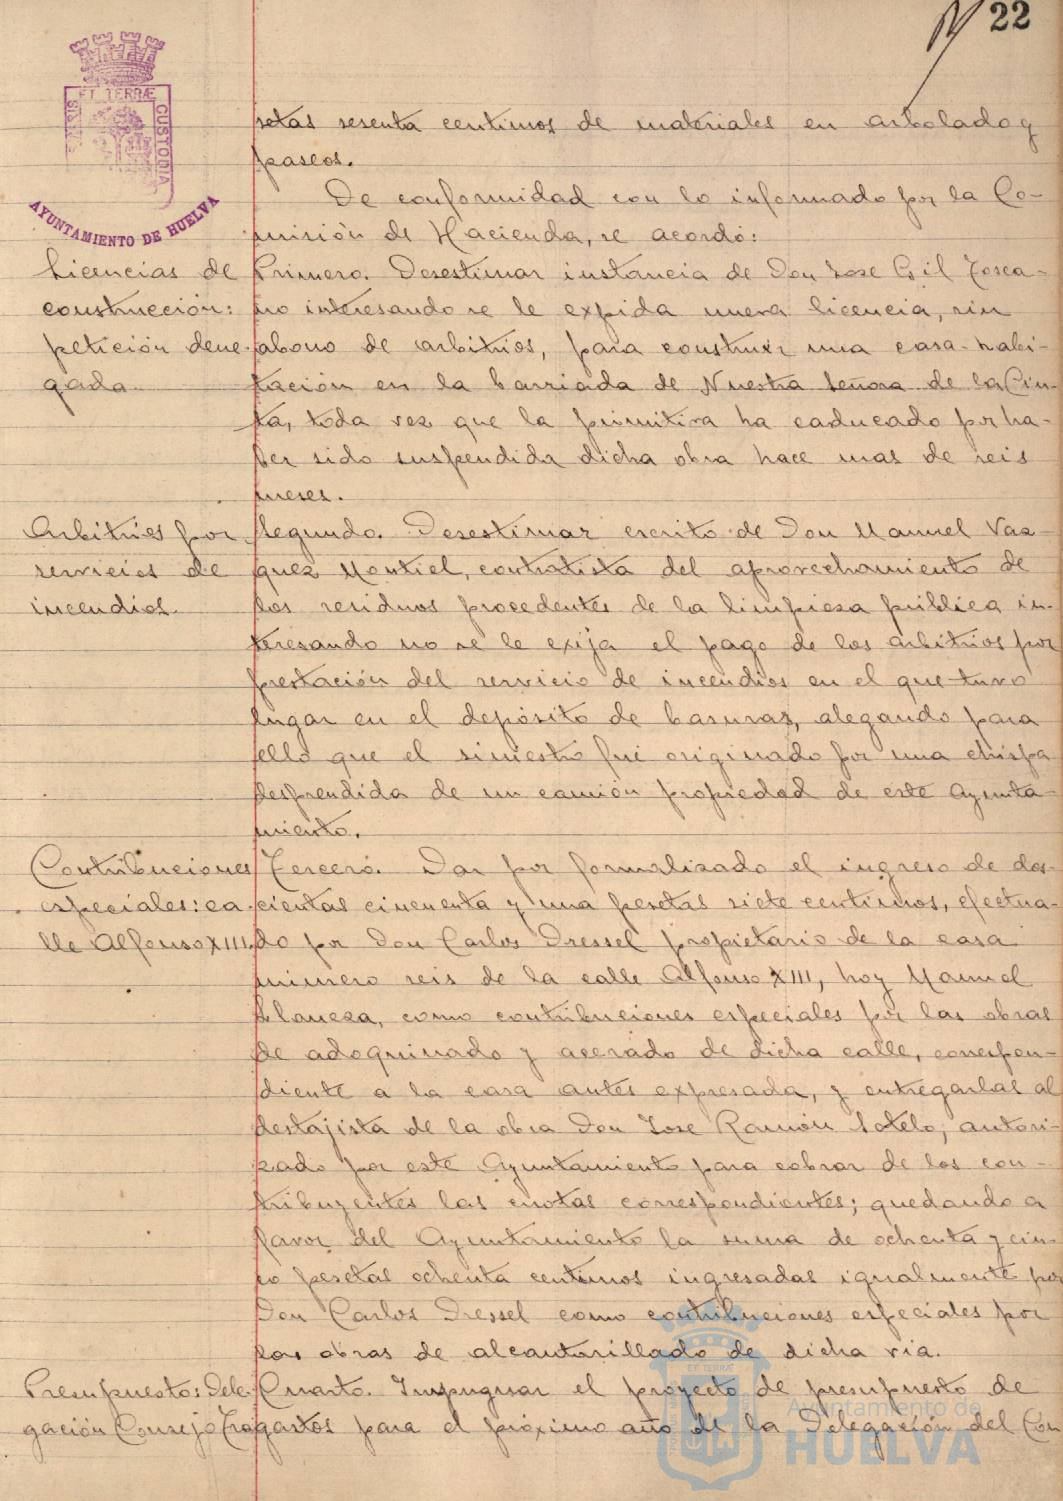 22
ET TERRÆ
CUSTODIA
AYUNTAMIENTO DE HUELVA
setas sesenta centimos de materiales en arbolado y
paseos.
De conformidad con lo informado por la Co-
misión de Hacienda, se acordó:
Licencias de
construcción:
petición dene-
gada.
Primero. Desestimar instancia de Don Jose Gil Tosca-
no interesando se le expida nueva licencia, sin
abono de arbitrios, para construir una casa-habi-
tación en la barriada de Nuestra Señora de la Cin-
ta, toda vez que la primitiva ha caducado por ha-
ber sido suspendida dicha obra hace mas de seis
meses.
Arbitrios por
servicios de
incendios.
Segundo. Desestimar escrito de Don Manuel Vaz-
quez Montiel, contratista del aprovechamiento de
los residuos procedentes de la limpieza pública in-
teresando no se le exija el pago de los arbitrios por
prestación del servicio de incendios en el que tuvo
lugar en el depósito de basuras, alegando para
ello que el siniestro fué originado por una chispa
desprendida de un camión propiedad de este Ayunta-
miento.
Contribuciones
especiales: ca-
lle Alfonso XIII.
Tercero. Dar por formalizado el ingreso de dos-
cientas cincuenta y una pesetas siete centimos, efectua-
do por Don Carlos Dressel propietario de la casa
número seis de la calle Alfonso XIII, hoy Manuel
Llaneza, como contribuciones especiales por las obras
de adoquinado y acerado de dicha calle, correspon-
diente a la casa antes expresada, y entregarlas al
destajista de la obra Don Jose Ramón Sotelo, autori-
zado por este Ayuntamiento para cobrar de los con-
tribuyentes las cuotas correspondientes; quedando a
favor del Ayuntamiento la suma de ochenta y cin-
co pesetas ochenta centimos ingresadas igualmente por
Don Carlos Dressel como contribuciones especiales por
las obras de alcantarillado de dicha via.
Presupuestos: Dele-
gación Consejo Tra
Cuarto. Impugnar el proyecto de presupuesto de
gastos para el próximo año de la Delegación del Con
Ayuntamiento de
HUELVA